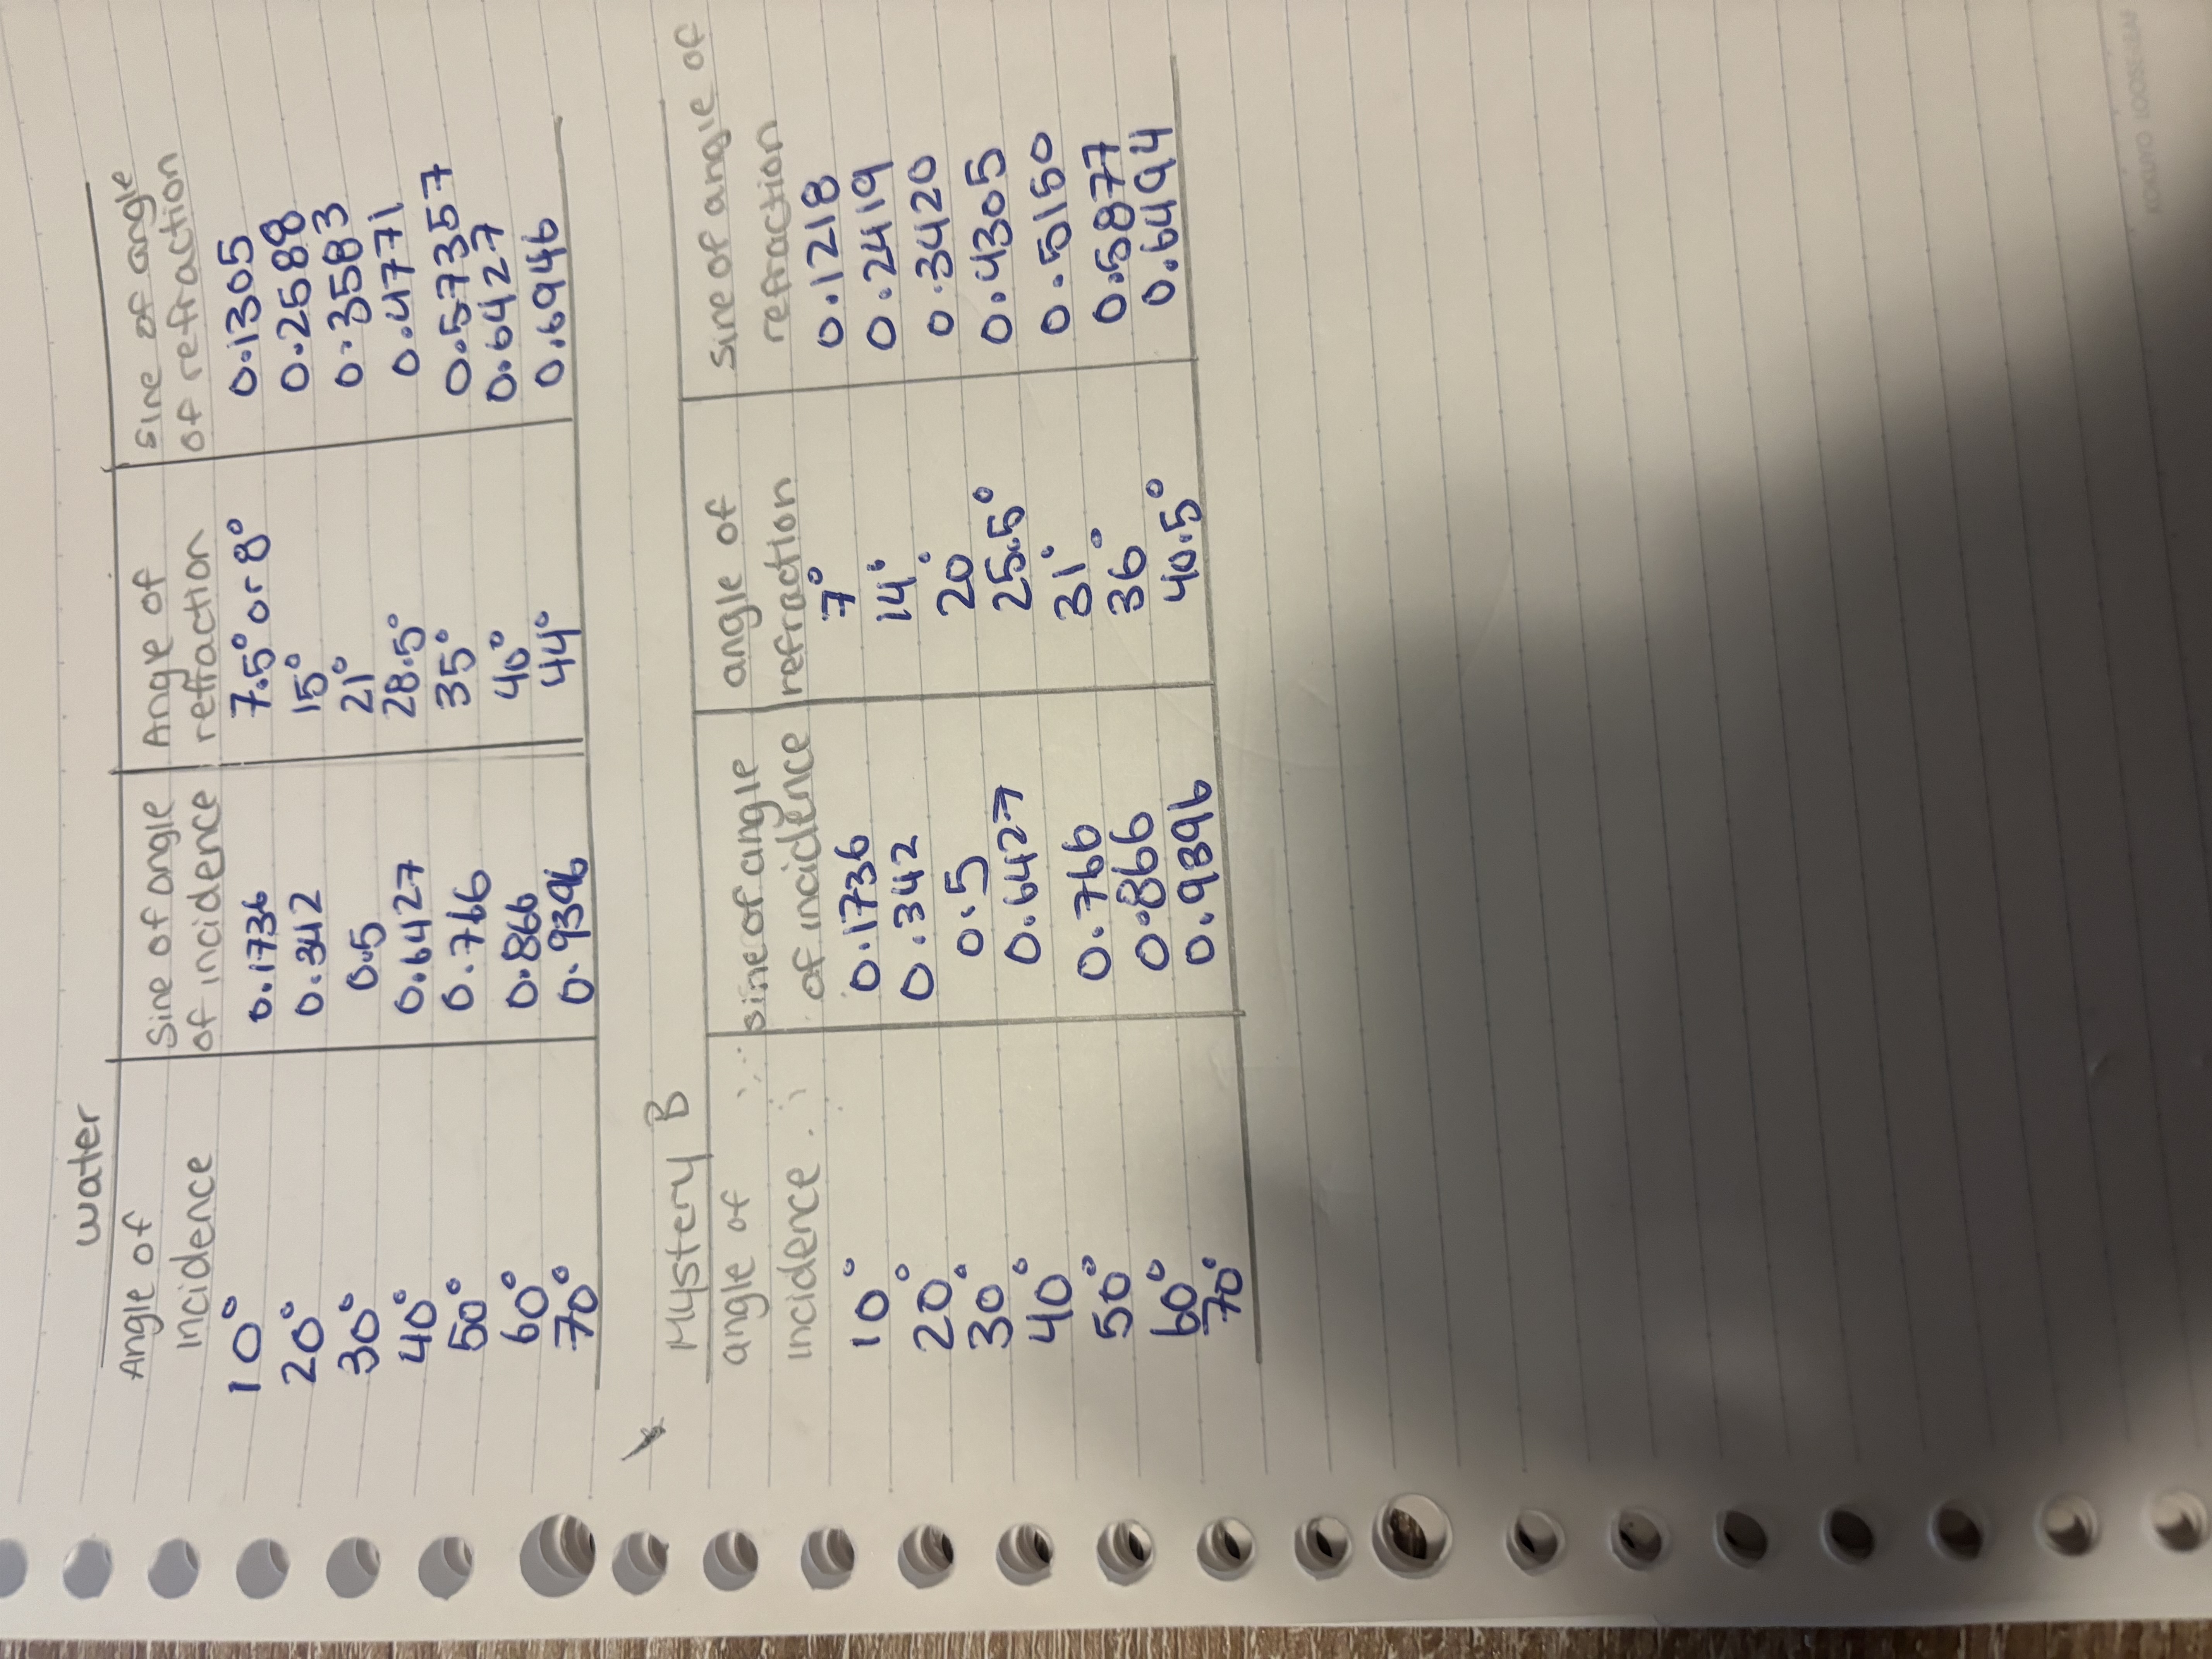 Water
Angle of Incidence | Sine of angle of incidence | Angle of refraction | Sine of angle of refraction
10° | 0.1736 | 7.5° or 8° | 0.1305
20° | 0.342 | 15° | 0.2588
30° | 0.5 | 21° | 0.3583
40° | 0.6427 | 28.5° | 0.4771
50° | 0.766 | 35° | 0.57357
60° | 0.866 | 40° | 0.6427
70° | 0.9396 | 44° | 0.6946
Mystery B
angle of incidence | sine of angle of incidence | angle of refraction | sine of angle of refraction
10° | 0.1736 | 7° | 0.1218
20° | 0.342 | 14° | 0.2419
30° | 0.5 | 20° | 0.3420
40° | 0.6427 | 25.5° | 0.4305
50° | 0.766 | 31° | 0.5150
60° | 0.866 | 36° | 0.5877
70° | 0.9896 | 40.5° | 0.6494
KOKUYO LOOSELEAF